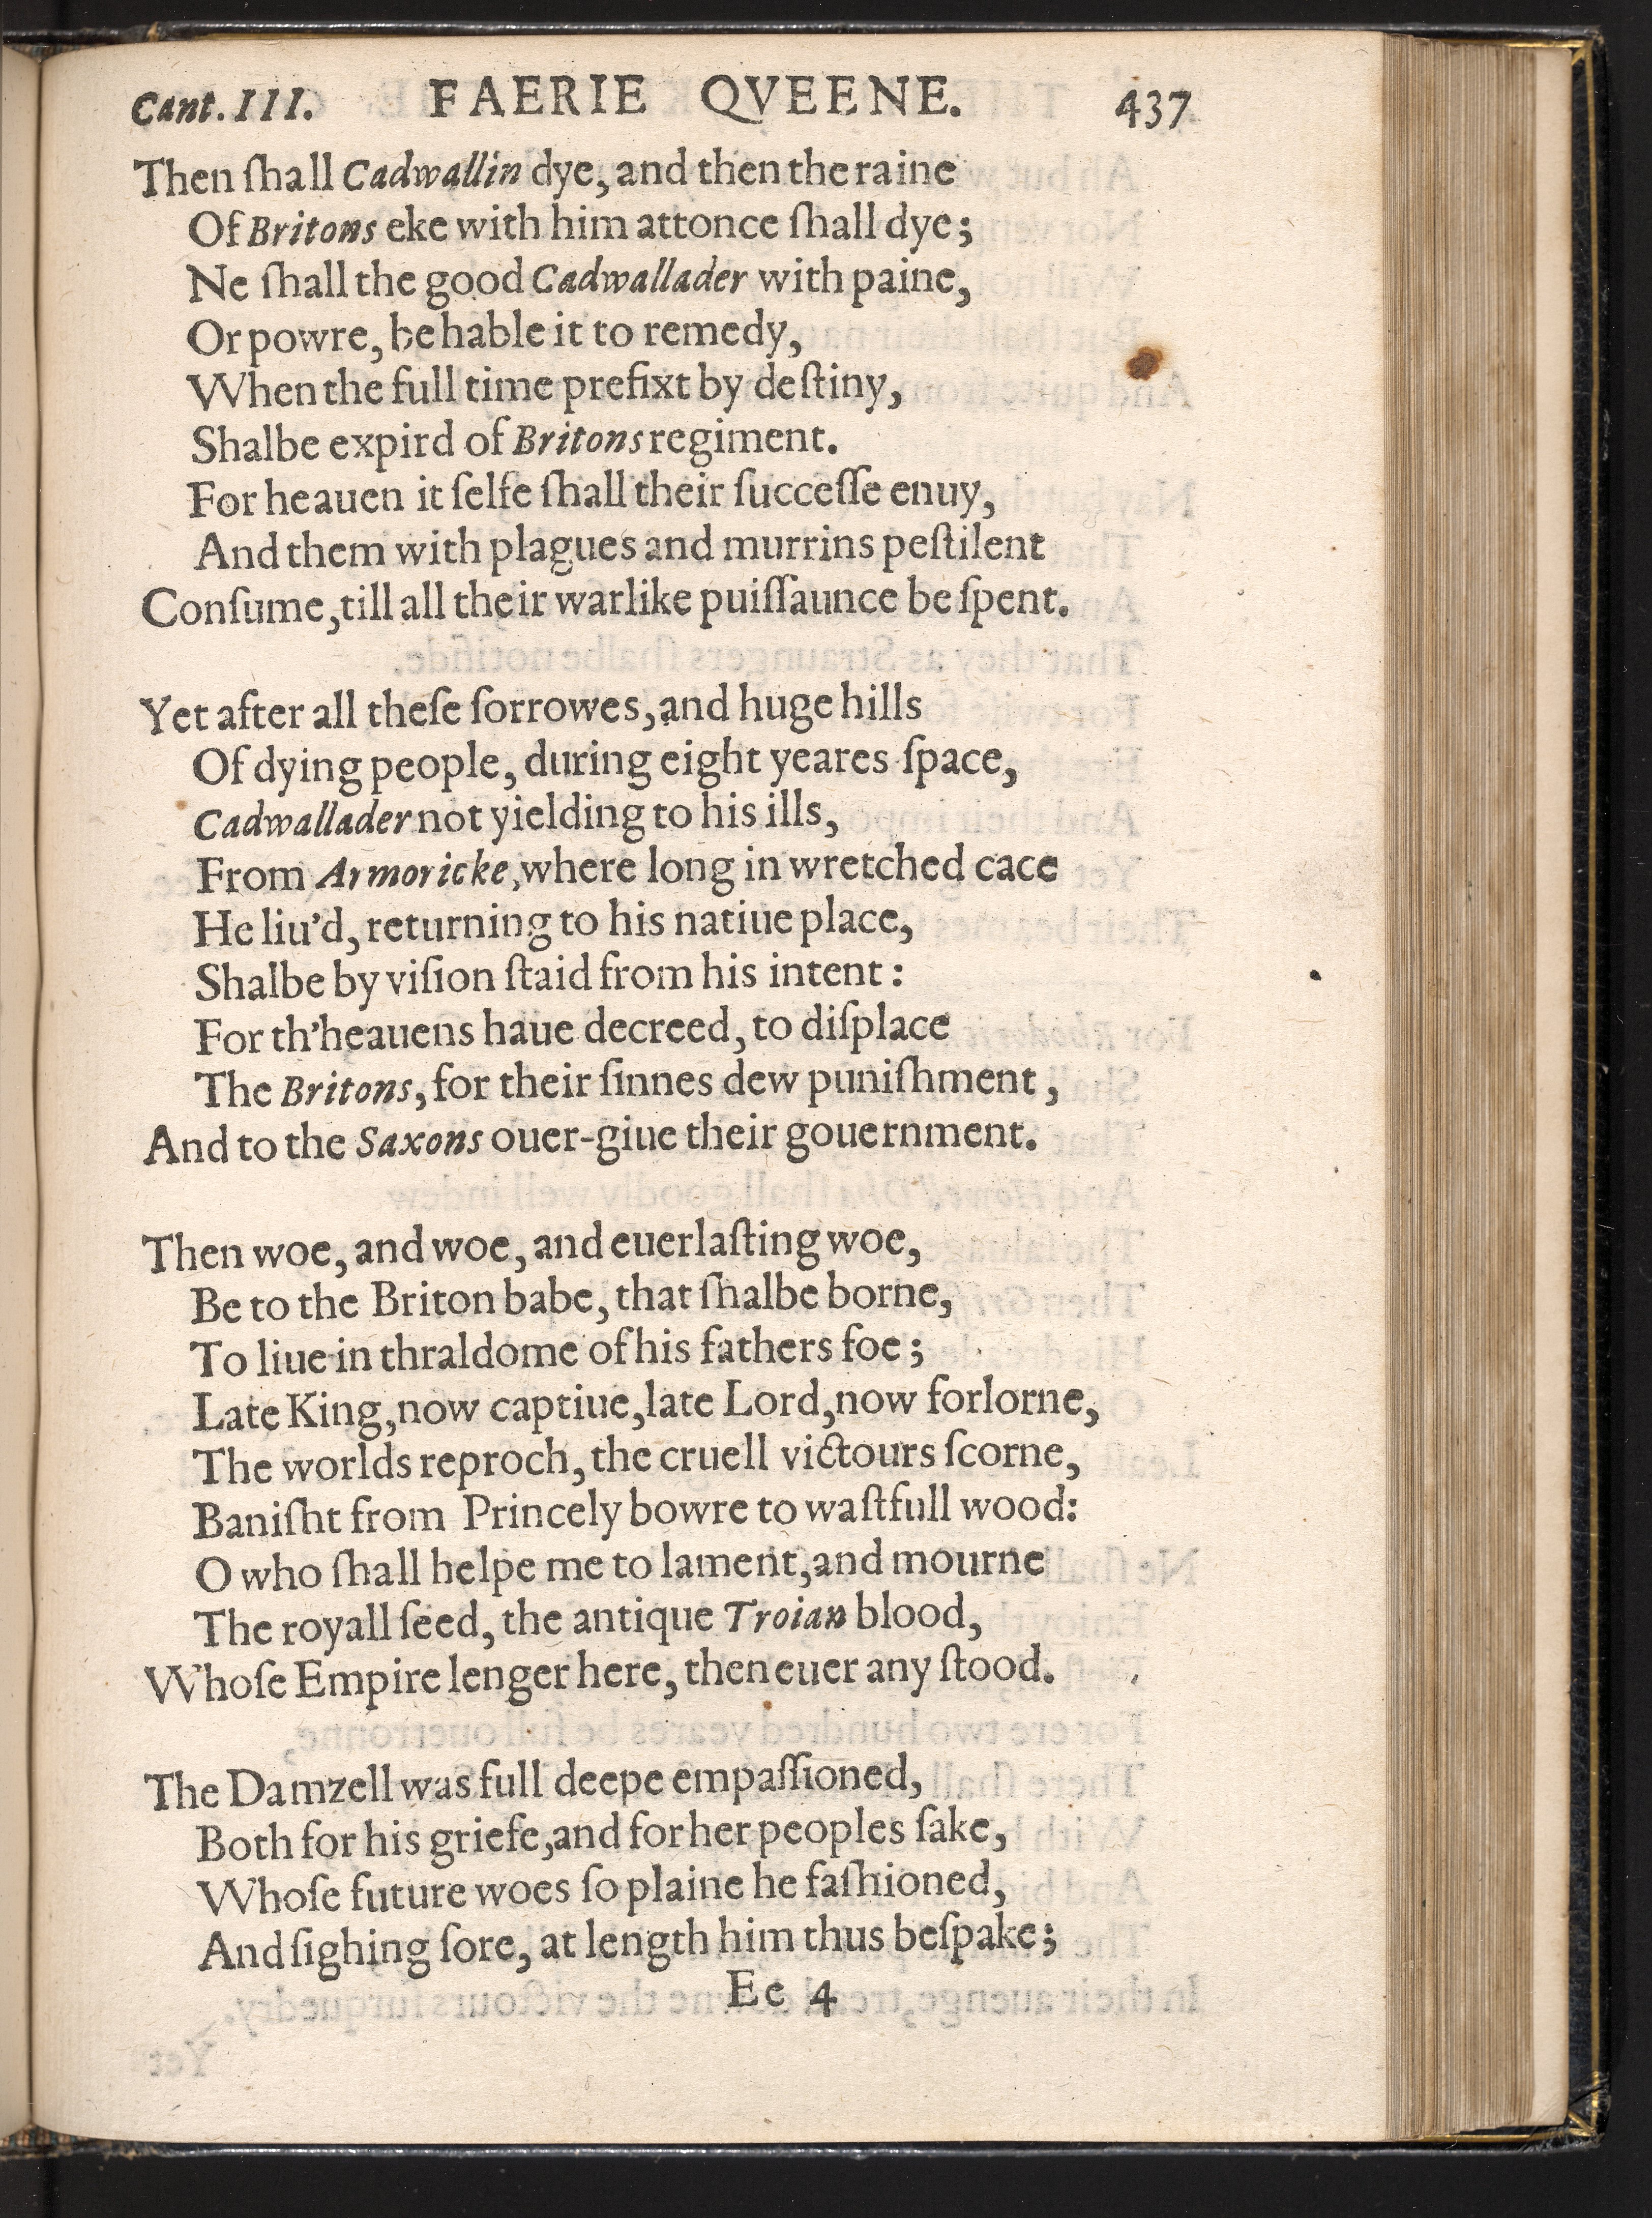 Cant. III. FAERIE QVEENE. 437
Then ſhall Cadwallin dye, and then the raine
Of Britons eke with him attonce ſhall dye;
Ne ſhall the good Cadwallader with paine,
Or powre, be hable it to remedy,
When the full time prefixt by deſtiny,
Shalbe expird of Britons regiment.
For heauen it ſelfe ſhall their ſucceſſe enuy,
And them with plagues and murrins peſtilent
Conſume, till all their warlike puiſſaunce be ſpent.
Yet after all theſe ſorrowes, and huge hills
Of dying people, during eight yeares ſpace,
Cadwallader not yielding to his ills,
From Armoricke, where long in wretched cace
He liu'd, returning to his natiue place,
Shalbe by viſion ſtaid from his intent:
For th'heauens haue decreed, to diſplace
The Britons, for their ſinnes dew puniſhment,
And to the Saxons ouer-giue their gouernment.
Then woe, and woe, and euerlaſting woe,
Be to the Briton babe, that ſhalbe borne,
To liue in thraldome of his fathers foe;
Late King, now captiue, late Lord, now forlorne,
The worlds reproch, the cruell victours ſcorne,
Baniſht from Princely bowre to waſtfull wood:
O who ſhall helpe me to lament, and mourne
The royall ſeed, the antique Troian blood,
Whoſe Empire lenger here, then euer any ſtood.
The Damzell was full deepe empaſſioned,
Both for his griefe, and for her peoples ſake,
Whoſe future woes ſo plaine he faſhioned,
And ſighing ſore, at length him thus beſpake;
Ee 4